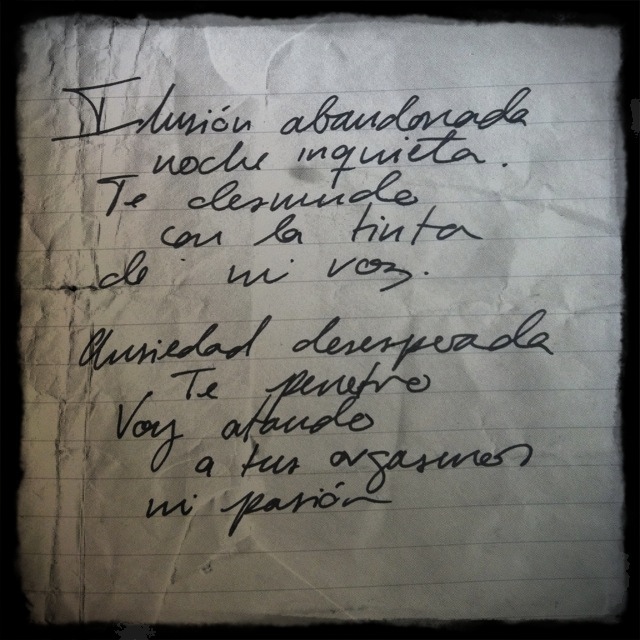 Ilusión abandonada
noche inquieta.
Te desnudo
con la tinta
de mi voz.
Ansiedad desesperada
Te penetro
Voy atando
a tus orgasmos
mi pasión